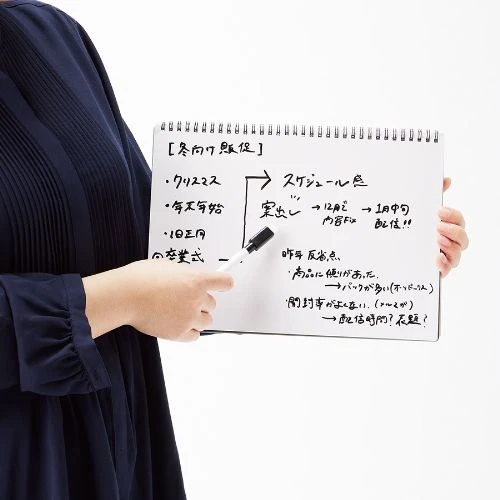 [冬向け販促]
・クリスマス
・年末年始
・旧正月
卒業式
スケジュール感
案出し → 12月で内容Fix → 1月中旬配信!!
昨年反省点
・商品に偏りがあった
→バックが多い
・開封率がよくない。(メルマガ)
→配信時間?表題?